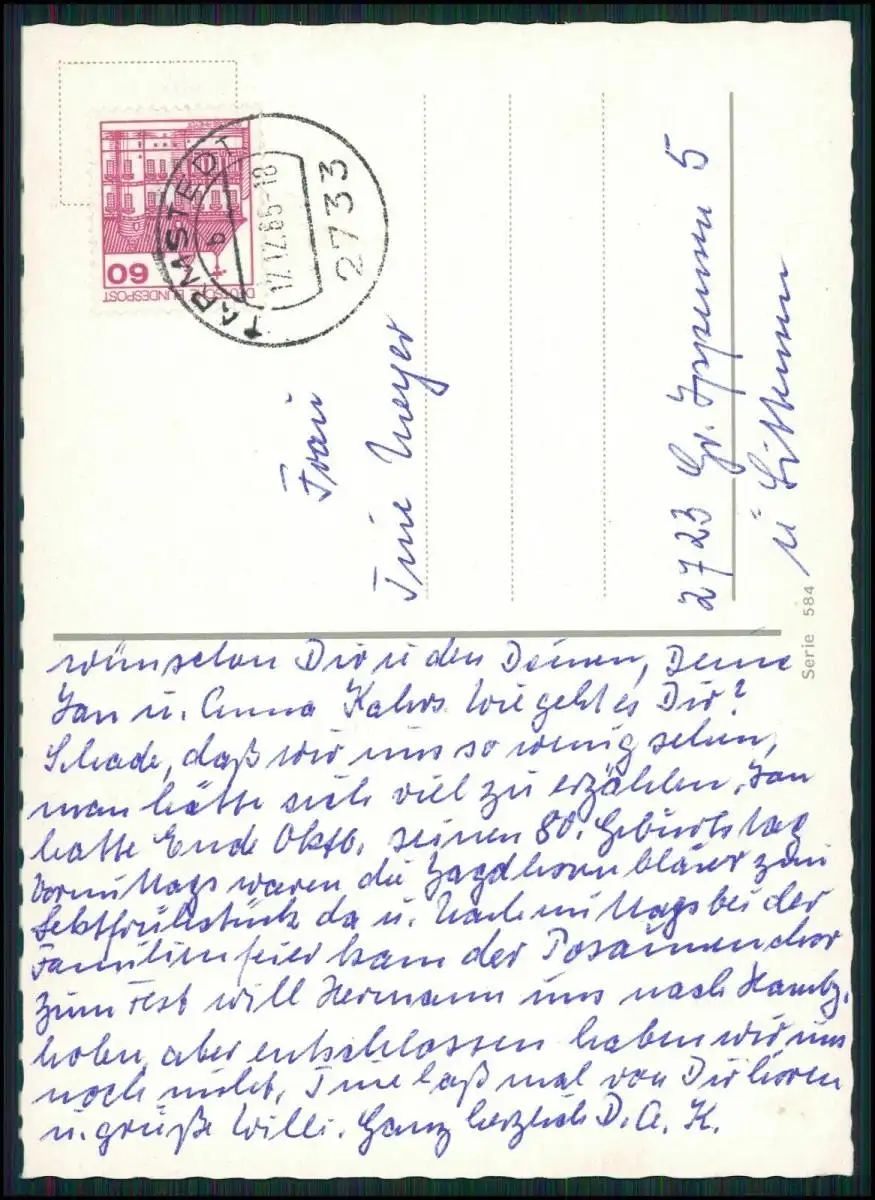 60
DEUTSCHE BUNDESPOST
TARMSTEDT
b
17.12.85-18
2733
Frau
Tine Meyer
2723 Gr.
5
ü
Serie 584
wünschen Dir u den Deinen, Deine
Jan u. Anna Kahrs. Wie geht es Dir?
Schade, daß wir uns so wenig sehen,
man hätte sich viel zu erzählen. Jan
hatte Ende Oktb. seinen 80. Geburtstag
Vormittags waren die Jagdhornbläser zum
Sektfrühstück da u. Nachmittags bei der
Familienfeier kam der Posaunenchor
zum Fest will Hermann uns nach Hambg.
holen, aber entschlossen haben wir uns
noch nicht. Tine laß mal von Dir hören
u. grüße Willi. Ganz herzlich D. A. K.